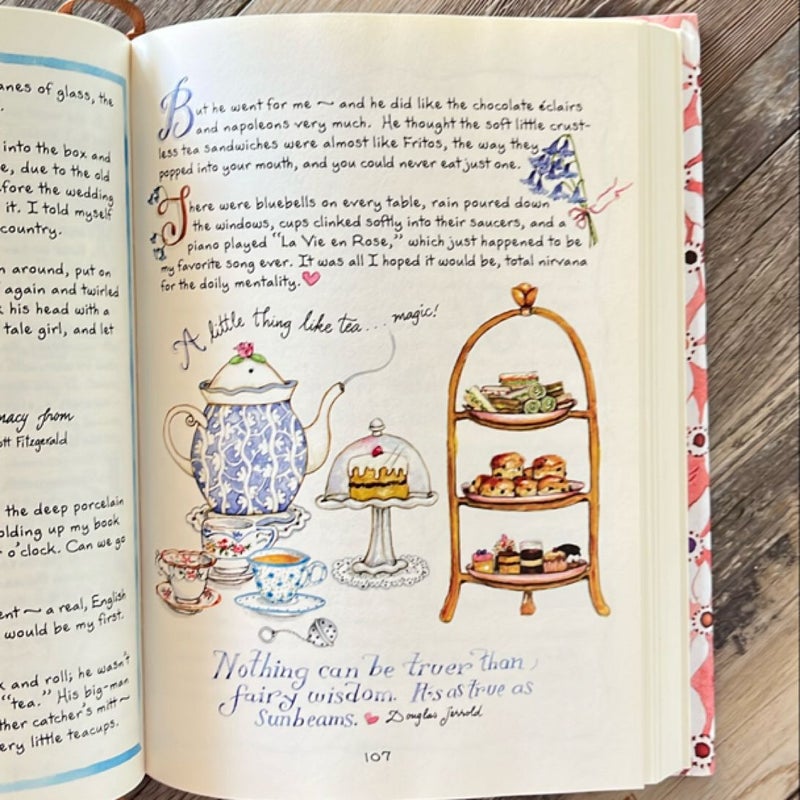 anes of glass, the
into the box and
e, due to the old
fore the wedding
it. I told myself
country.
n around, put on
again and twirled
his head with a
tale girl, and let
macy from
ott Fitzgerald
the deep porcelain
olding up my book
o'clock. Can we go
ent ~ a real, English
would be my first.
k and roll; he wasn't
"tea." His big-man
ther catcher's mitt ~
ery little teacups.
But he went for me ~ and he did like the chocolate éclairs
and napoleons very much. He thought the soft little crust-
less tea sandwiches were almost like Fritos, the way they
popped into your mouth, and you could never eat just one.
There were bluebells on every table, rain poured down
the windows, cups clinked softly into their saucers, and a
piano played "La Vie en Rose," which just happened to be
my favorite song ever. It was all I hoped it would be, total nirvana
for the doily mentality.
A little thing like tea... magic!
Nothing can be truer than
fairy wisdom. It's as true as
Sunbeams. Douglas Jerrold
107